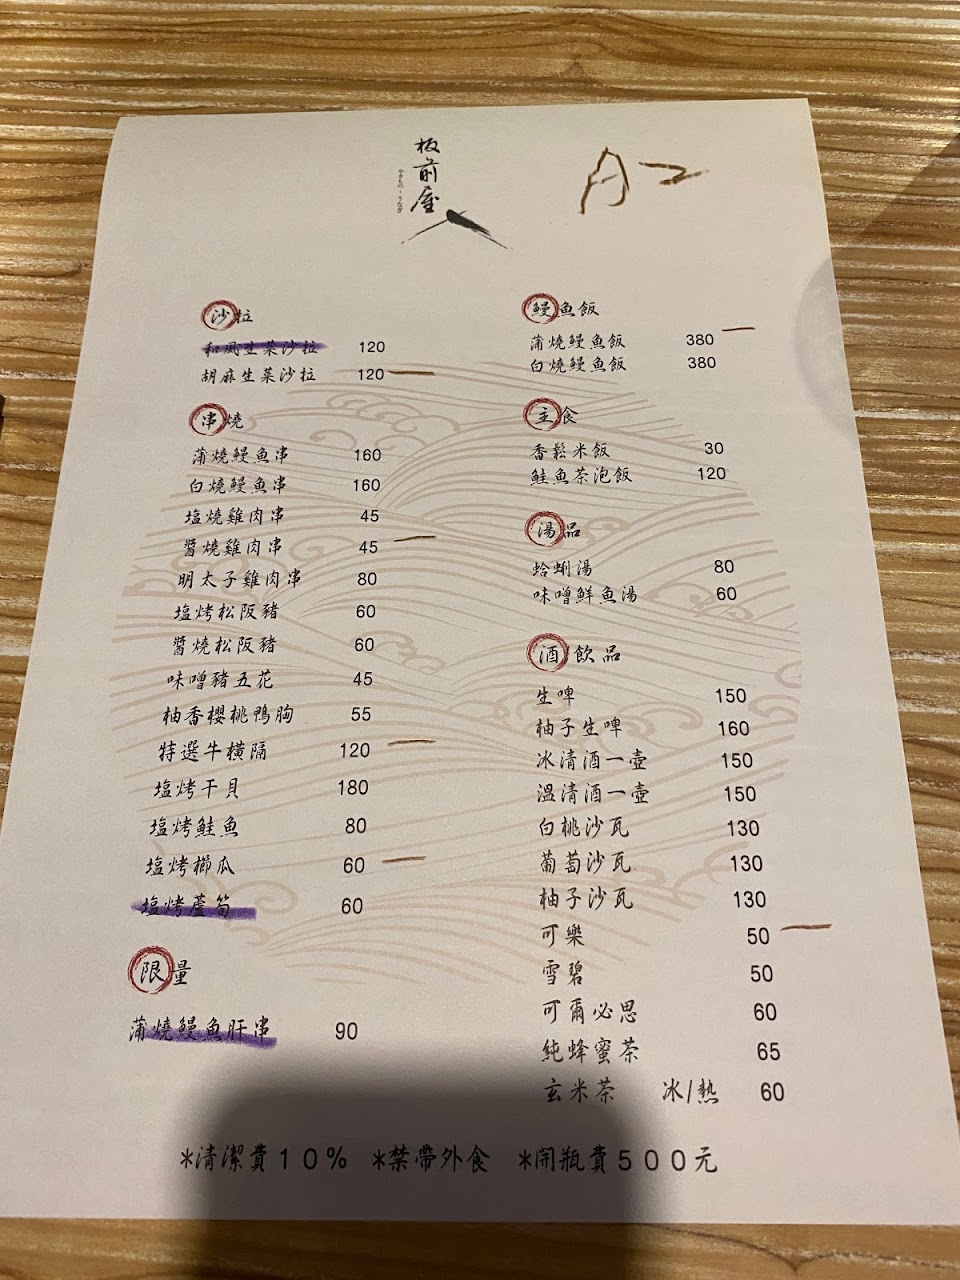 板前屋
やきもの・うなぎ
A2
沙拉
和風生菜沙拉 120
胡麻生菜沙拉 120
串燒
蒲燒鰻魚串 160
白燒鰻魚串 160
塩燒雞肉串 45
醬燒雞肉串 45
明太子雞肉串 80
塩烤松阪豬 60
醬燒松阪豬 60
味噌豬五花 45
柚香櫻桃鴨胸 55
特選牛橫隔 120
塩烤干貝 180
塩烤鮭魚 80
塩烤櫛瓜 60
塩烤蘆筍 60
限量
蒲燒鰻魚肝串 90
鰻魚飯
蒲燒鰻魚飯 380
白燒鰻魚飯 380
主食
香鬆米飯 30
鮭魚茶泡飯 120
湯品
蛤蜊湯 80
味噌鮮魚湯 60
酒/飲品
生啤 150
柚子生啤 160
冰清酒一壺 150
溫清酒一壺 150
白桃沙瓦 130
葡萄沙瓦 130
柚子沙瓦 130
可樂 50
雪碧 50
可爾必思 60
純蜂蜜茶 65
玄米茶 冰/熱 60
*清潔費10% *禁帶外食 *開瓶費500元